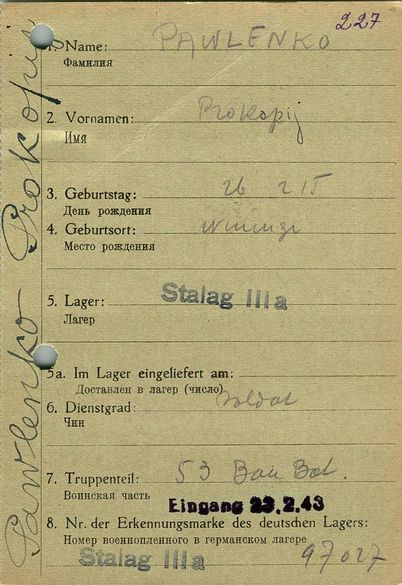 227
1. Name: PAWLENKO
Фамилия
2. Vornamen: Prokopij
Имя
3. Geburtstag: 26 2 15
День рождения
4. Geburtsort:
Место рождения
5. Lager: Stalag III a
Лагер
5a. Im Lager eingeliefert am:
Доставлен в лагер (число)
6. Dienstgrad: Soldat
Чин
7. Truppenteil: 53 Bau Bat.
Воинская часть
Eingang 23.2.43
8. Nr. der Erkennungsmarke des deutschen Lagers:
Номер военнопленного в германском лагере
Stalag III a 97027
Pawlenko Prokopij